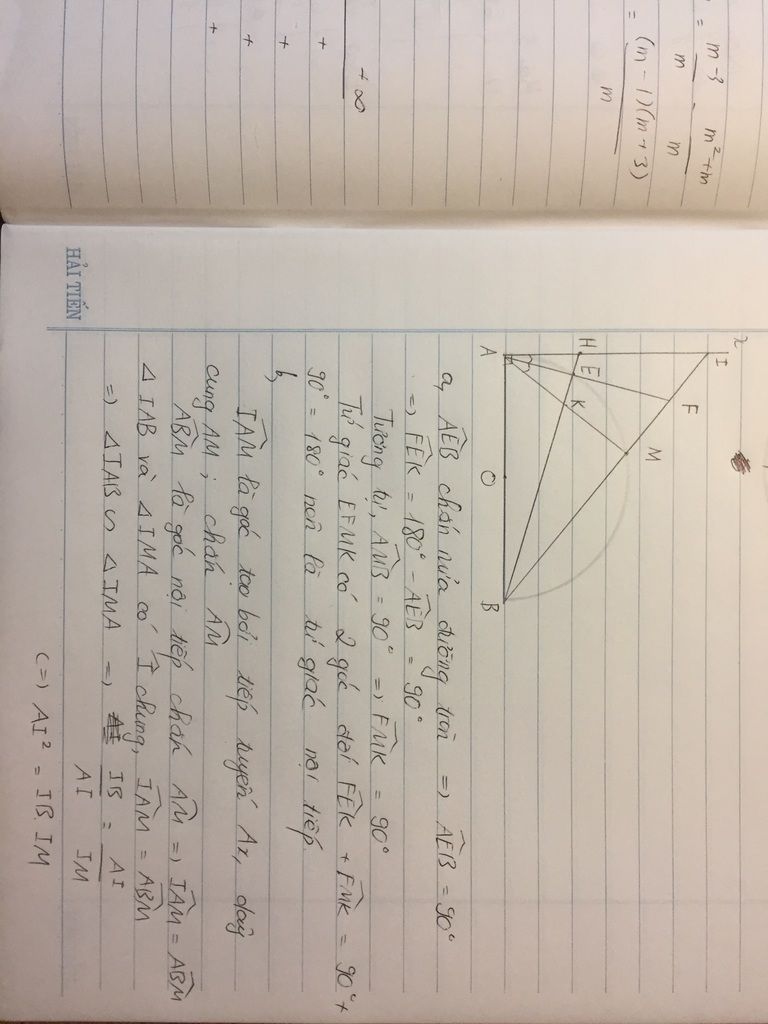 = m-3/m . m²+m/m
= (m-1)(m+3)/m
+∞
+
+
+
+
HẢI TIẾN
x
I
H
F
E
M
K
A
O
B
a, AEB chắn nửa đường tròn => AEB = 90°
=> FEK = 180° - AEB = 90°
Tương tự, AMB = 90° => FMK = 90°
Tứ giác EFMK có 2 góc đối FEK + FMK = 90° +
90° = 180° nên là tứ giác nội tiếp.
b,
IAM là góc tạo bởi tiếp tuyến Ax, dây
cung AM; chắn AM
ABM là góc nội tiếp chắn AM => IAM = ABM
Δ IAB và Δ IMA có I chung, IAM = ABM
=> Δ IAB ∽ Δ IMA => IB/AI = AI/IM
(=) AI² = IB IM